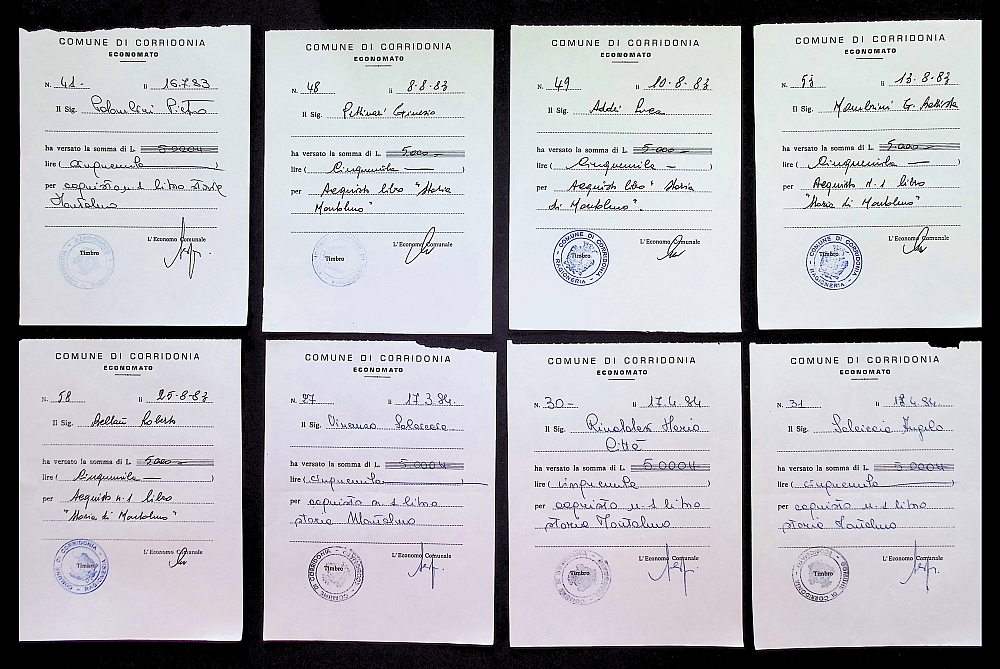 COMUNE DI CORRIDONIA
ECONOMATO
N. 41- li 16.7.83
Il Sig. Pietro
ha versato la somma di L. 5000
lire ( cinquemila )
per acquisto n. 1 libro storia
L'Economo Comunale
Timbro
COMUNE DI CORRIDONIA
ECONOMATO
N. 48 li 8-8-83
Il Sig. Pettinari Ginesio
ha versato la somma di L. 5000
lire ( Cinquemila )
per Acquisto libro "Storia
Montolmo"
L'Economo Comunale
Timbro
COMUNE DI CORRIDONIA
ECONOMATO
N. 49 li 10-8-83
Il Sig. Addei Luca
ha versato la somma di L. 5000
lire ( Cinquemila )
per Acquisto libro "Storia
di Montolmo".
L'Economo Comunale
COMUNE DI CORRIDONIA
RAGIONERIA
Timbro
COMUNE DI CORRIDONIA
ECONOMATO
N. 53 li 13-8-83
Il Sig. G. Battista
ha versato la somma di L. 5000
lire ( Cinquemila )
per Acquisto n. 1 libro
"Storia di Montolmo"
L'Economo Comunale
COMUNE DI CORRIDONIA
RAGIONERIA
Timbro
COMUNE DI CORRIDONIA
ECONOMATO
N. 58 li 25-8-83
Il Sig. Roberto
ha versato la somma di L. 5000
lire ( Cinquemila )
per Acquisto n. 1 libro
"Storia di Montolmo"
L'Economo Comunale
COMUNE DI CORRIDONIA
Timbro
COMUNE DI CORRIDONIA
ECONOMATO
N. 27 li 17.3.84.
Il Sig. Vincenzo Salaccia
ha versato la somma di L. 5000
lire ( cinquemila
per acquisto n. 1 libro
storia Montolmo
L'Economo Comunale
COMUNE DI CORRIDONIA
Timbro
COMUNE DI CORRIDONIA
ECONOMATO
N. 30- li 17.4.84
Il Sig. Mario
Città
ha versato la somma di L. 5000
lire ( cinquemila )
per acquisto n. 1 libro
storia Montolmo
L'Economo Comunale
Timbro
COMUNE DI CORRIDONIA
ECONOMATO
N. 31 li 18.4.84.
Il Sig. Salciccia Angelo
ha versato la somma di L. 5000
lire ( cinquemila )
per acquisto n. 1 libro
storia Montolmo
L'Economo Comunale
COMUNE DI CORRIDONIA
Timbro